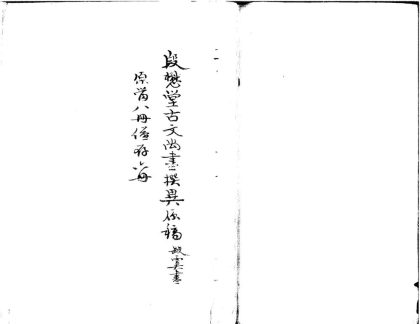 段懋堂古文尚書撰異原稿
原當八冊僅存六冊